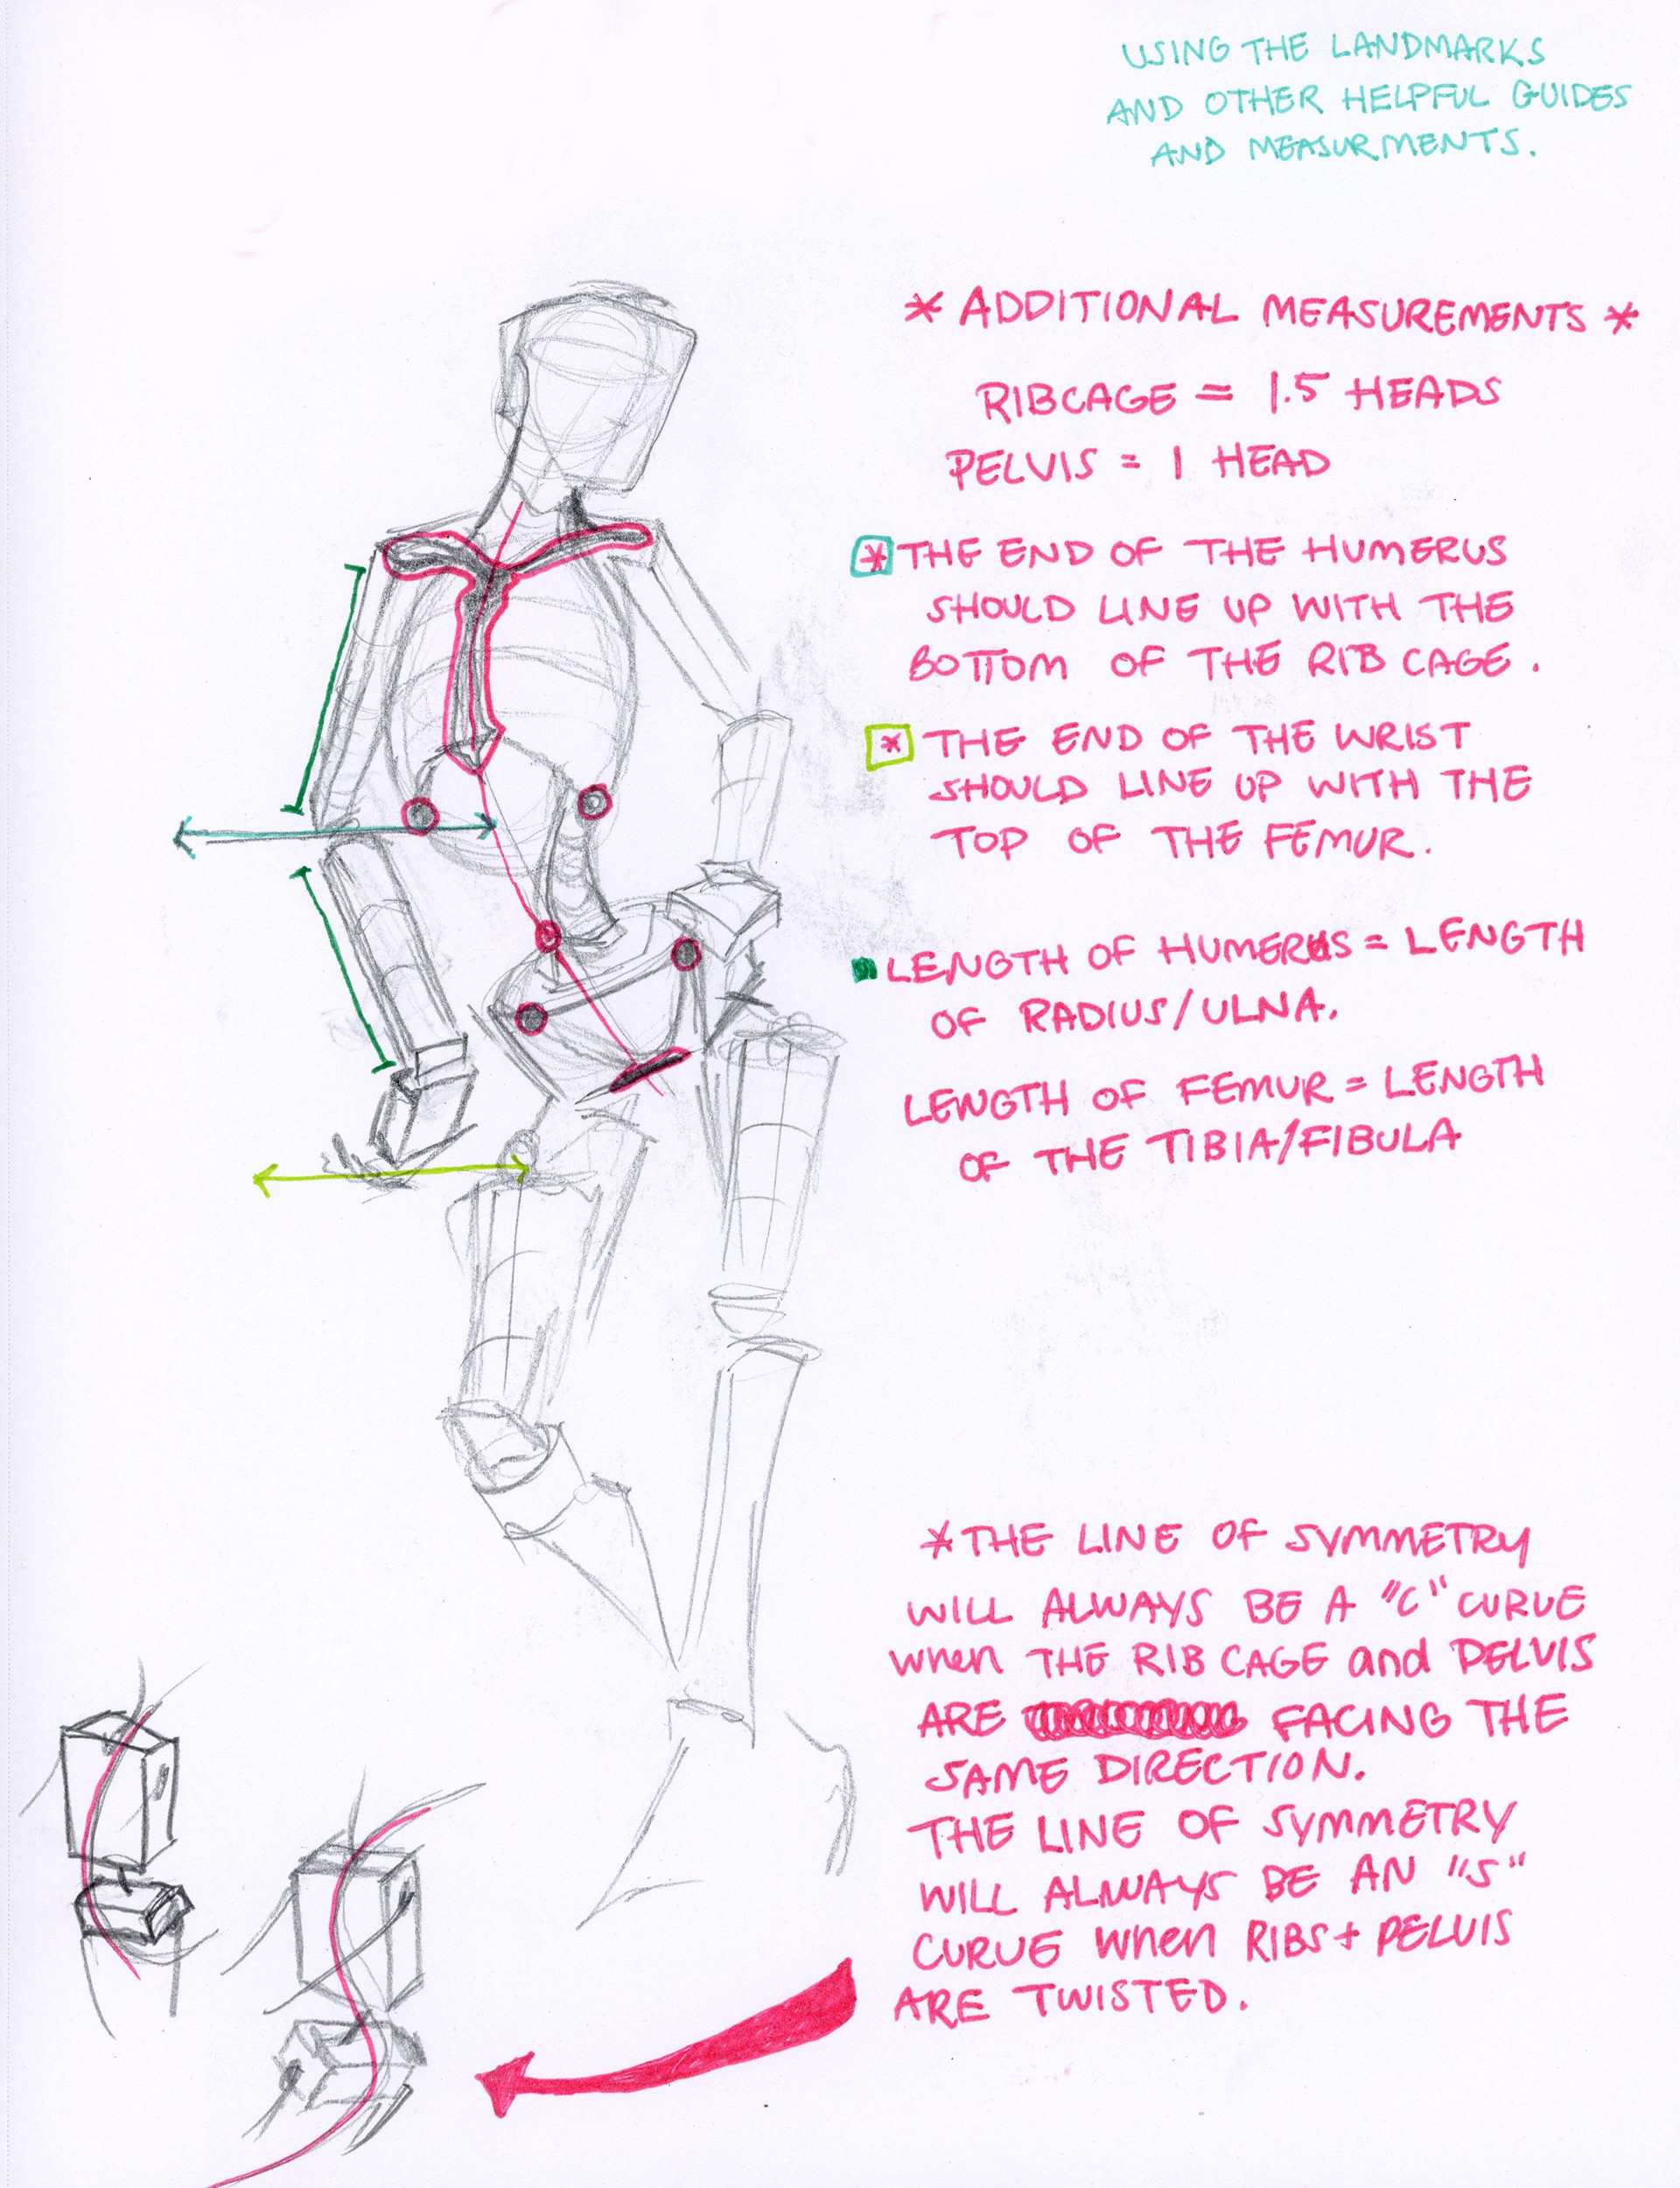 USING THE LANDMARKS
AND OTHER HELPFUL GUIDES
AND MEASURMENTS.
* ADDITIONAL MEASUREMENTS *
RIBCAGE = 1.5 HEADS
PELVIS = 1 HEAD
* THE END OF THE HUMERUS
SHOULD LINE UP WITH THE
BOTTOM OF THE RIB CAGE.
* THE END OF THE WRIST
SHOULD LINE UP WITH THE
TOP OF THE FEMUR.
LENGTH OF HUMERUS = LENGTH
OF RADIUS/ULNA.
LENGTH OF FEMUR = LENGTH
OF THE TIBIA/FIBULA
* THE LINE OF SYMMETRY
WILL ALWAYS BE A "C" CURVE
when THE RIB CAGE and PELVIS
ARE FACING THE
SAME DIRECTION.
THE LINE OF SYMMETRY
WILL ALWAYS BE AN "S"
CURVE when RIBS + PELVIS
ARE TWISTED.